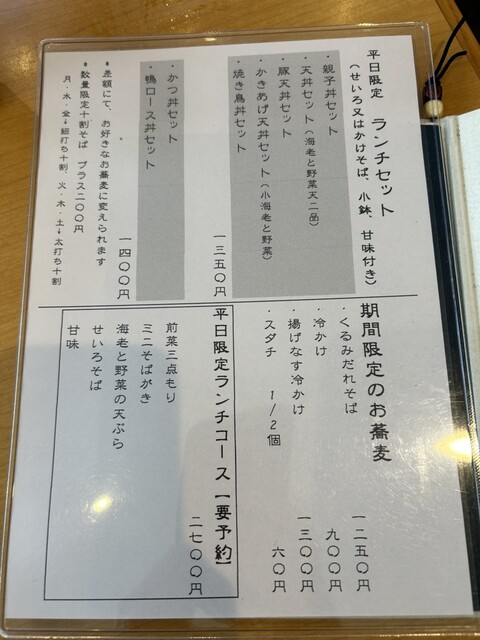 平日限定 ランチセット
(せいろ又はかけそば、小鉢、甘味付き)
・親子丼セット
・天丼セット(海老と野菜天二品)
・豚天丼セット
・かきあげ天丼セット(小海老と野菜)
・焼き鳥丼セット
一三五〇円
・かつ丼セット
・鴨ロース丼セット
一四〇〇円
*差額にて、お好きなお蕎麦に変えられます
*数量限定十割そば プラス二〇〇円
月・水・金→細打ち十割 火・木・土→太打ち十割
期間限定のお蕎麦
・くるみだれそば 一二五〇円
・冷かけ 九〇〇円
・揚げなす冷かけ 一三〇〇円
・スダチ 1/2個 六〇円
平日限定ランチコース【要予約】
二七〇〇円
前菜三点もり
ミニそばがき
海老と野菜の天ぷら
せいろそば
甘味